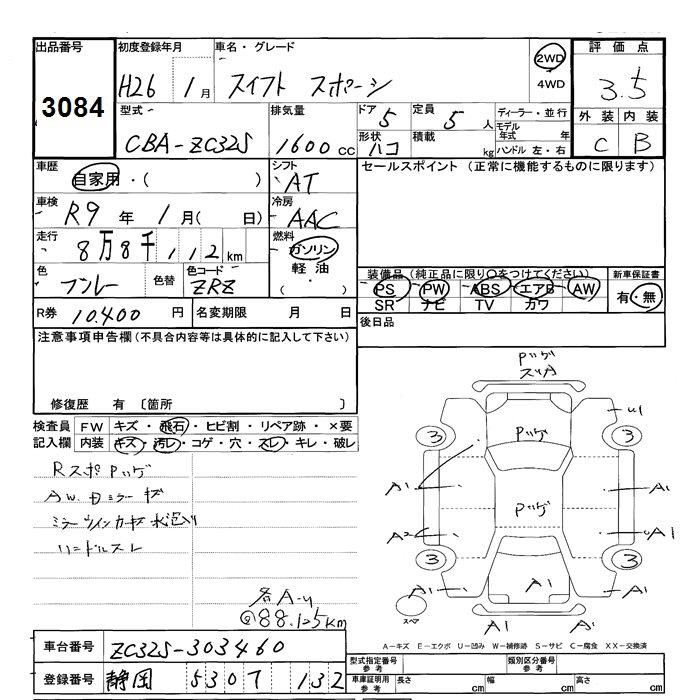 出品番号
3084
初度登録年月
H26 1月
車名・グレード
スイフト スポーツ
2WD
4WD
評価点
3.5
型式
CBA-ZC32S
排気量
1600 cc
ドア
5
定員
5人
形状
ハコ
積載
kg
ディーラー・並行
モデル年式 年
ハンドル 左・右
外装
C
内装
B
車歴
自家用・( )
シフト
AT
セールスポイント (正常に機能するものに限ります)
車検
R9年 1月( 日)
冷房
AAC
走行
8万8千112km
燃料
ガソリン
軽油
( ・ )
色
色替
色コード
ZRZ
装備品 (純正品に限り○をつけてください)
PS PW ABS エアB AW
SR ナビ TV カワ
新車保証書
有・無
R券 10.400 円
名変期限 月 日
後日品
注意事項申告欄 (不具合内容等は具体的に記入して下さい)
修復歴 有 〔箇所 〕
検査員記入欄
FW キズ・飛石・ヒビ割・リペア跡・×要
内装 キズ・汚レ・コゲ・穴・スレ・キレ・破レ
Rスポ Pッゲ
ハンドルスレ
各A-U
@88.125km
Pッゲ
スリA
U1
3
3
Pッゲ
A1
A1
Pッゲ
A2
A1
3
3
A1
A1
A1
スペア
A1
A1
A-キズ E-エクボ U-凹み W-補修跡 S-サビ C-腐食 XX-交換済
車台番号
ZC32S-303460
登録番号
静岡 530 ワ 132
型式指定番号 参考
類別区分番号 参考
車庫証明用 参考
長さ cm
幅 cm
高さ cm